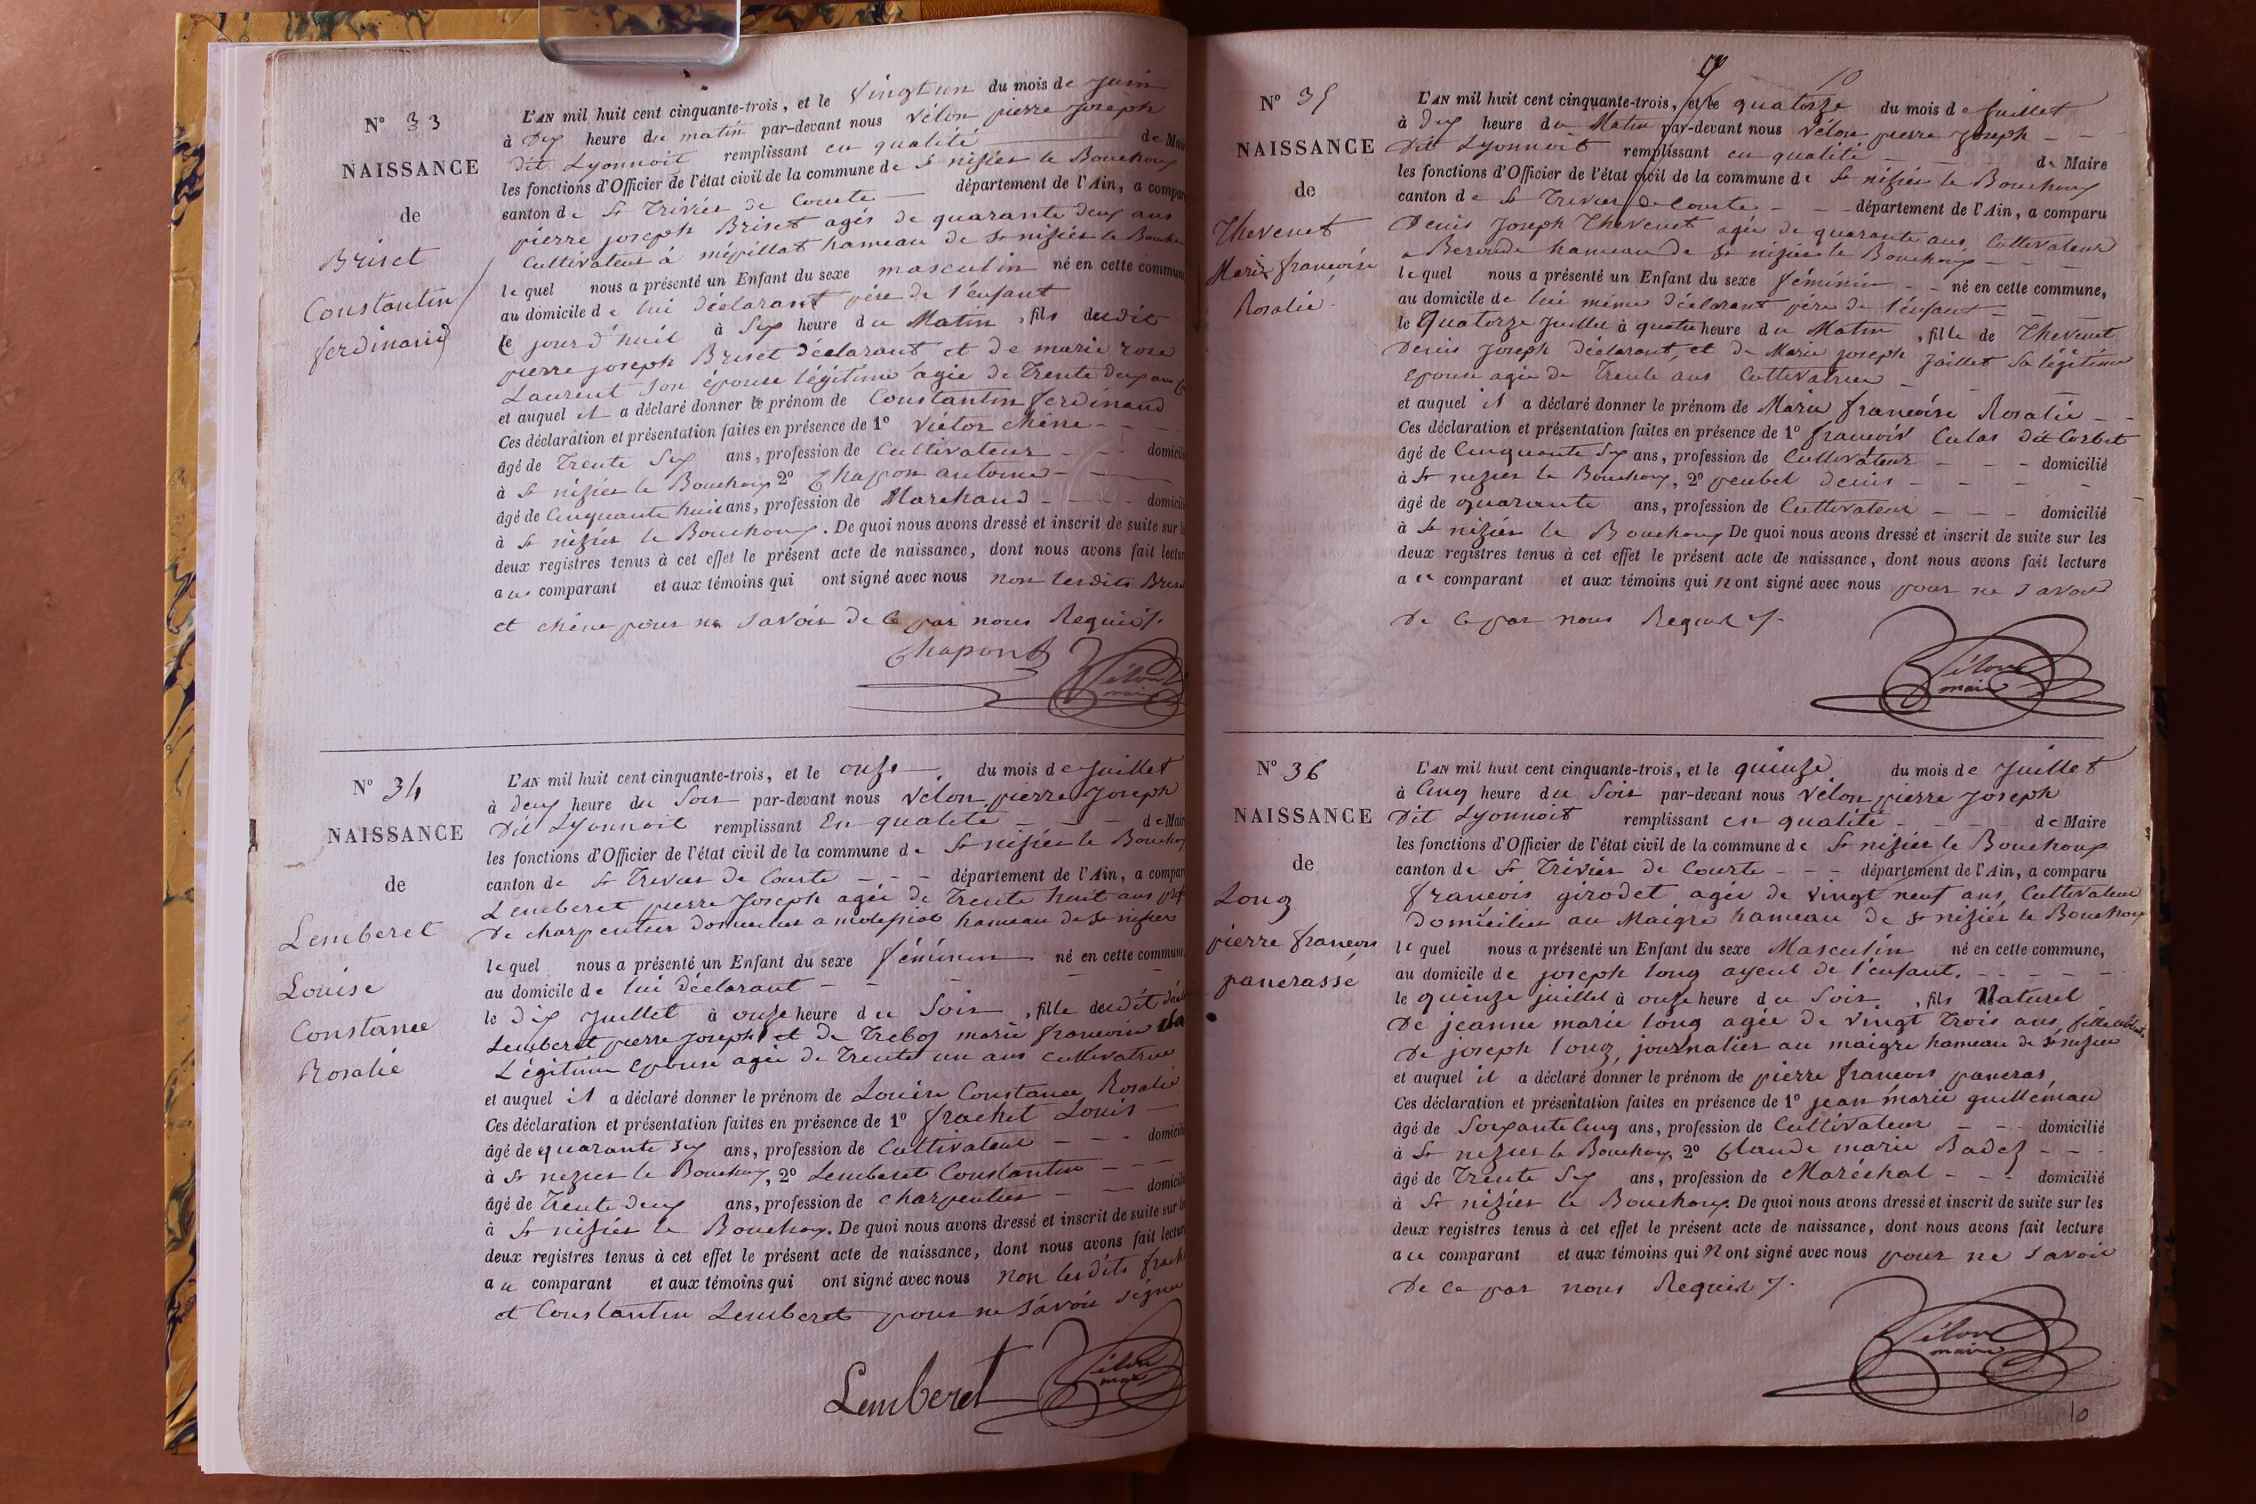 N° 33
NAISSANCE
de
Briset
Constantin
ferdinand
L'AN mil huit cent cinquante-trois, et le vingt un du mois de Juin
à Dix heure du matin par-devant nous Vélon pierre Joseph
Dit Lyonnoit remplissant en qualité de Maire
les fonctions d'Officier de l'état civil de la commune de St nizier le Bouchoux
canton de St Trivier de Courte département de l'Ain, a compar
pierre joseph Briset agés de quarante deux ans
Cultivateur à mépillat hameau de St nizier le Bouch
lequel nous a présenté un Enfant du sexe masculin né en cette commune
au domicile de lui déclarant père de l'enfant
le jour d'huit à Six heure du Matin, fils dudit
pierre joseph Briset déclarant et de marie rose
Laurent son épouse légitime agée de Trente deux ans
et auquel il a déclaré donner le prénom de Constantin ferdinand
Ces déclaration et présentation faites en présence de 1° Victor chêne - - -
âgé de Trente Six ans, profession de Cultivateur - - - domicilié
à St nizier le Bouchoux 2° Chapon antoine - -
âgé de Cinquante huit ans, profession de Marchand - - - domicilié
à St nizier le Bouchoux. De quoi nous avons dressé et inscrit de suite sur les
deux registres tenus à cet effet le présent acte de naissance, dont nous avons fait lecture
aux comparant et aux témoins qui ont signé avec nous non lesdits Brise
et chêne pour ne savoir de Ce par nous Requis.
Chapont
Vélon
maire
N° 34
NAISSANCE
de
Lemberet
Louise
Constance
Rosalie
L'AN mil huit cent cinquante-trois, et le onze du mois de Juillet
à deux heure du Soir par-devant nous Vélon pierre Joseph
Dit Lyonnoit remplissant En qualité - - - de Maire
les fonctions d'Officier de l'état civil de la commune de St nizier le Bouchoux
canton de St Trivier de Courte - - - département de l'Ain, a compar
Lemberet pierre Joseph agée de Trente huit ans prof
De charpentier domicilié a hameau de St nizier
lequel nous a présenté un Enfant du sexe féminin né en cette commune
au domicile de lui déclarant - - -
le dix Juillet à onze heure du Soir, fille dudit
Lemberet pierre joseph et de Treboz marie francoise
Légitime Epouse agée de Trente un ans cultivatrice
et auquel il a déclaré donner le prénom de Louise Constance Rosalie
Ces déclaration et présentation faites en présence de 1° frachet Louis -
âgé de quarante six ans, profession de Cultivateur - - - domicilié
à St nizier le Bouchoux, 2° Lemberet Constantin - - -
âgé de Trente deux ans, profession de charpentier - - domicilié
à St nizier le Bouchoux. De quoi nous avons dressé et inscrit de suite sur les
deux registres tenus à cet effet le présent acte de naissance, dont nous avons fait lecture
au comparant et aux témoins qui ont signé avec nous non lesdits frach
et Constantin Lemberet pour ne savoir signer
Lemberet
Vélon
maire
10
N° 35
NAISSANCE
de
Thevenet
Marie francoise
Rosalie
L'AN mil huit cent cinquante-trois, et le quatorze du mois de Juillet
à dix heure du Matin par-devant nous Vélon pierre Joseph - -
Dit Lyonnoit remplissant en qualité - de Maire
les fonctions d'Officier de l'état civil de la commune de St nizier le Bouchoux
canton de St Trivier de Courte - - - département de l'Ain, a comparu
Denis Joseph Thevenet agée de quarante ans, Cultivateur
a Beroude hameau de St nizier le Bouchoux - - -
lequel nous a présenté un Enfant du sexe féminin - - né en cette commune,
au domicile de lui même déclarant père de l'enfant - -
le Quatorze Juillet à quatre heure du Matin, fille de Thevenet
Denis Joseph déclarant, et de Marie joseph Jaillet sa légitime
epouse agée de Trente ans Cultivatrice -
et auquel il a déclaré donner le prénom de Marie francoise Rosalie - -
Ces déclaration et présentation faites en présence de 1° francois Culas dit Corbet
âgé de Cinquante Six ans, profession de Cultivateur - - - domicilié
à St nizier le Bouchoux, 2° peubel denis - - - -
âgé de quarante ans, profession de Cultivateur - - - domicilié
à St nizier le Bouchoux De quoi nous avons dressé et inscrit de suite sur les
deux registres tenus à cet effet le présent acte de naissance, dont nous avons fait lecture
au comparant et aux témoins qui n ont signé avec nous pour ne savoir
De Ce par nous Requis.
Vélon
maire
N° 36
NAISSANCE
de
Long
pierre francois
pancrasse
L'AN mil huit cent cinquante-trois, et le quinze du mois de Juillet
à Cinq heure du Soir par-devant nous Vélon pierre Joseph
Dit Lyonnoit remplissant en qualité - - - - de Maire
les fonctions d'Officier de l'état civil de la commune de St nizier le Bouchoux
canton de St Trivier de Courte - - - département de l'Ain, a comparu
francois girodet agée de vingt neuf ans, Cultivateur
domicilier au Maigre hameau de St nizier le Bouchoux
lequel nous a présenté un Enfant du sexe Masculin né en cette commune,
au domicile de joseph long ayeul de l'enfant. - - - - -
le quinze juillet à onze heure du Soir, fils Naturel
De jeanne marie long agée de vingt Trois ans, fille
De joseph long, journalier au maigre hameau de St nizier
et auquel il a déclaré donner le prénom de pierre francois pancras,
Ces déclaration et présentation faites en présence de 1° jean marie guilleman
âgé de Soixante Cinq ans, profession de Cultivateur - - - domicilié
à St nizier le Bouchoux, 2° Claude marie Badez - - -
âgé de Trente Six ans, profession de Maréchal - - - domicilié
à St nizier le Bouchoux. De quoi nous avons dressé et inscrit de suite sur les
deux registres tenus à cet effet le présent acte de naissance, dont nous avons fait lecture
au comparant et aux témoins qui n ont signé avec nous pour ne savoir
De ce par nous Requis.
Vélon
maire
10